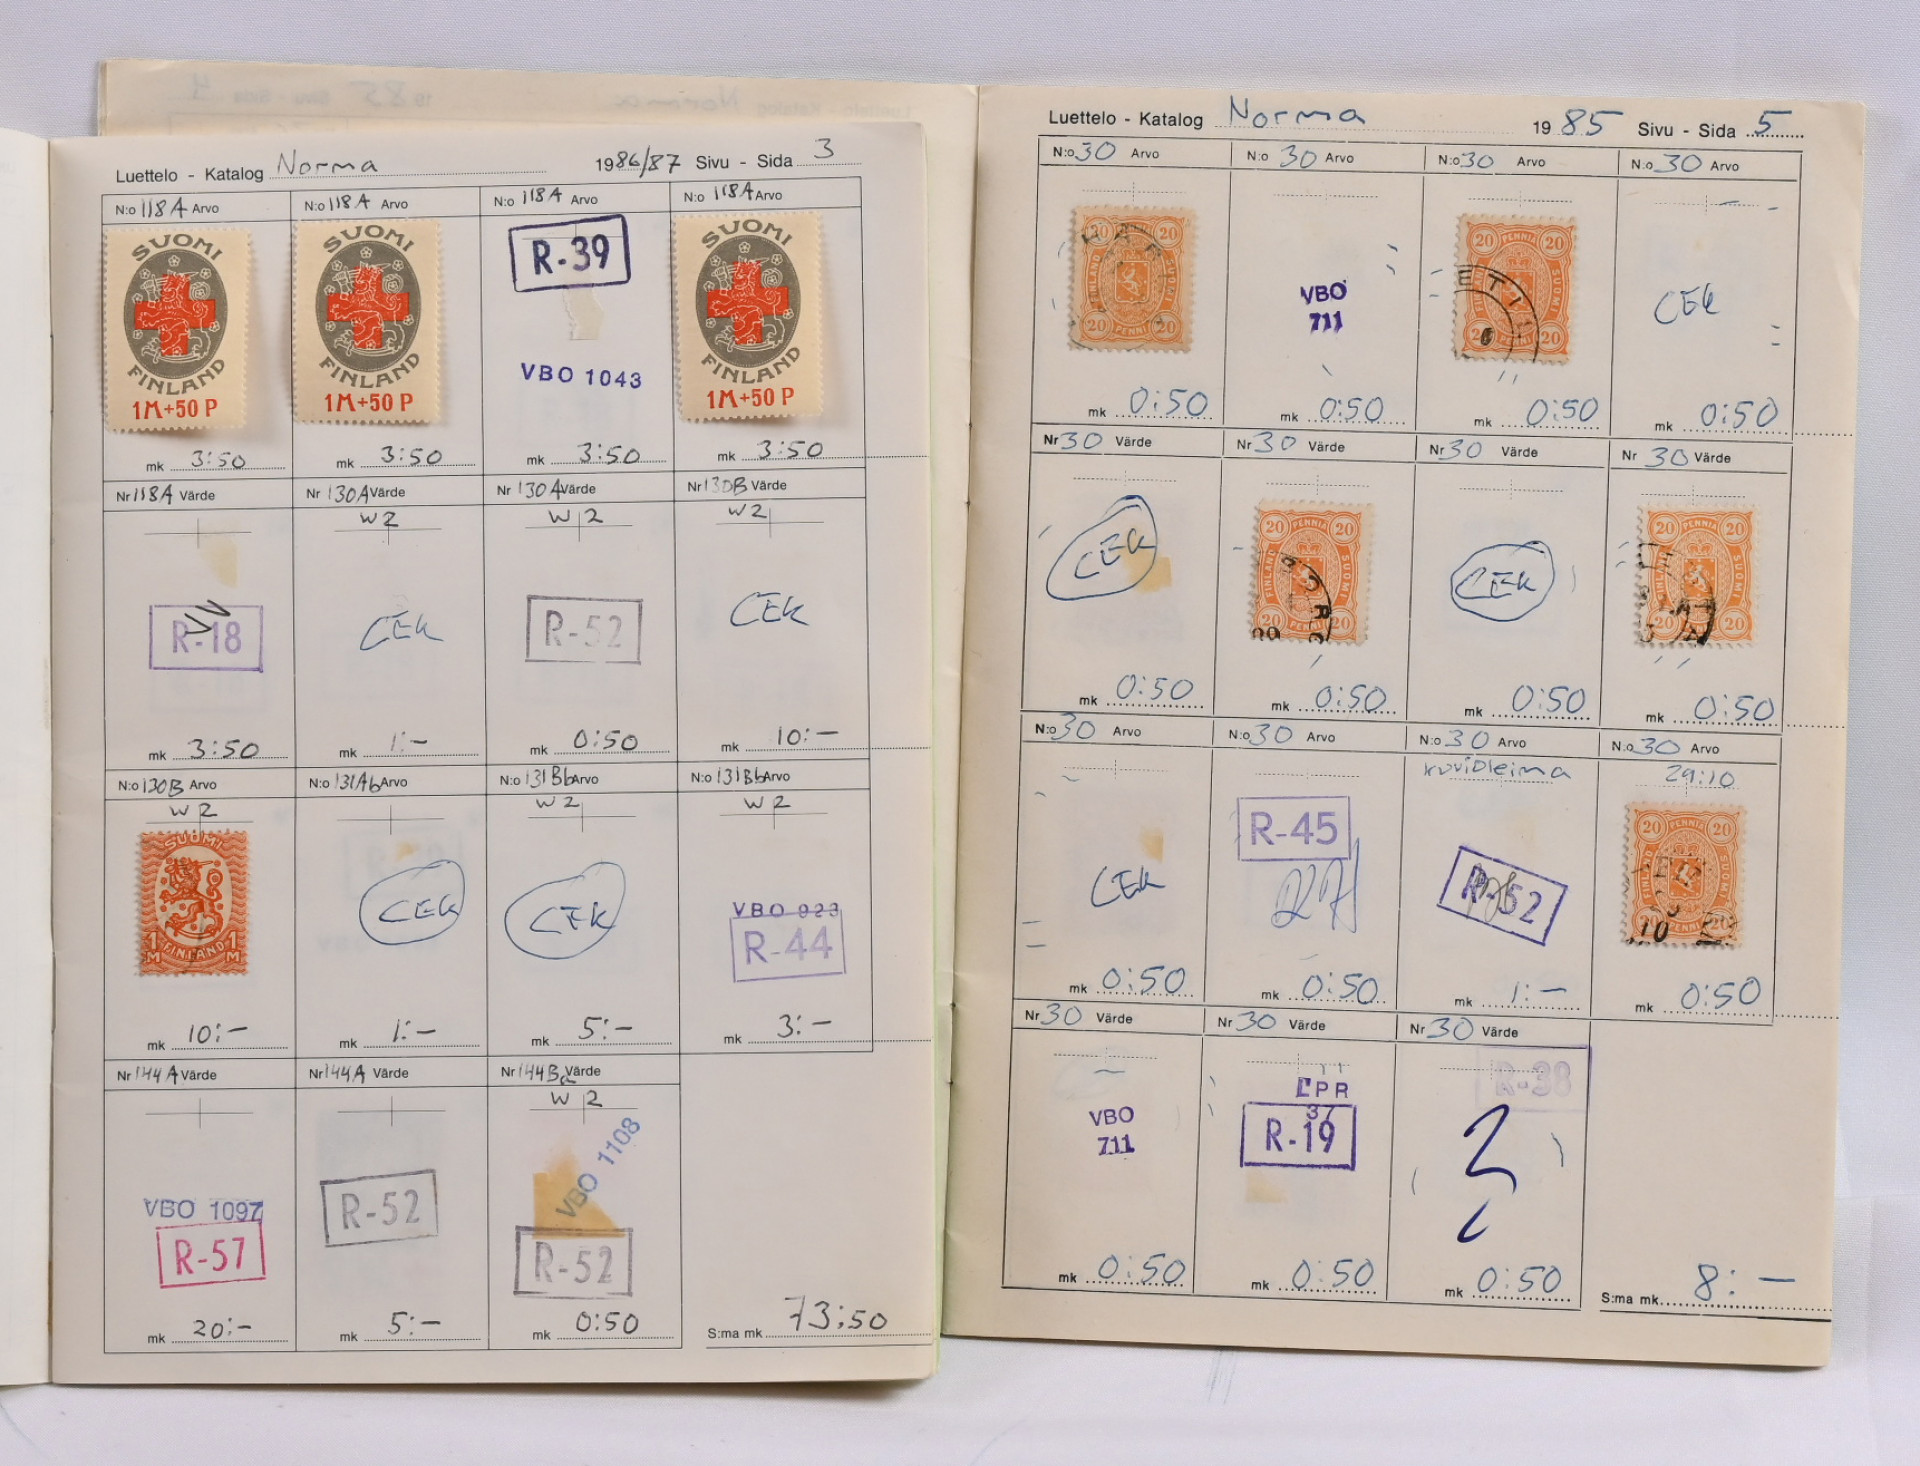 Luettelo - Katalog Norma 1986/87 Sivu - Sida 3
N:o 118A Arvo N:o 118A Arvo N:o 118A Arvo N:o 118A Arvo
SUOMI FINLAND 1M+50 P
SUOMI FINLAND 1M+50 P
R-39
VBO 1043
SUOMI FINLAND 1M+50 P
mk 3:50 mk 3:50 mk 3:50 mk 3:50
Nr 118A Värde Nr 130A Värde Nr 130A Värde Nr 130B Värde
W2 W2 W2
R-18 CEK R-52 CEK
mk 3:50 mk 1:- mk 0:50 mk 10:-
N:o 130B Arvo N:o 131Ab Arvo N:o 131Bb Arvo N:o 131Bb Arvo
W2 W2 W2
SUOMI 1 M FINLAND 1 M
CEK CEK VBO 923
R-44
mk 10:- mk 1:- mk 5:- mk 3:-
Nr 144A Värde Nr 144A Värde Nr 144Ba Värde
W2
VBO 1097 R-57
R-52
VBO 1108 R-52
mk 20:- mk 5:- mk 0:50 S:ma mk 73:50
Luettelo - Katalog Norma 1985 Sivu - Sida 5
N:o 30 Arvo N:o 30 Arvo N:o 30 Arvo N:o 30 Arvo
20 PENNIÄ 20 FINLAND SUOMI 20 PENNI 20
VBO 711
20 PENNIÄ 20 FINLAND SUOMI 20 PENNI 20
CEK
mk 0:50 mk 0:50 mk 0:50 mk 0:50
Nr 30 Värde Nr 30 Värde Nr 30 Värde Nr 30 Värde
CEK
20 PENNIÄ 20 FINLAND SUOMI 20 PENNI 20
CEK
20 PENNIÄ 20 FINLAND SUOMI 20 PENNI 20
mk 0:50 mk 0:50 mk 0:50 mk 0:50
N:o 30 Arvo N:o 30 Arvo N:o 30 Arvo N:o 30 Arvo
29:10
CEK
R-45
R-52
20 PENNIÄ 20 FINLAND SUOMI 20 PENNI 20
mk 0:50 mk 0:50 mk 1:- mk 0:50
Nr 30 Värde Nr 30 Värde Nr 30 Värde
VBO 711
LPR 37
R-19
R-38
mk 0:50 mk 0:50 mk 0:50 S:ma mk 8:-